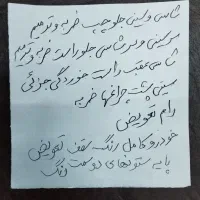 شاسی و سینی جلو چپ ضربه و ترمیم
سر سینی و سر شاسی جلو راست ضربه و ترمیم
شاسی عقب راست خوردگی جزئی
سینی پشت چراغها ضربه
رام تعویض
خودرو کامل رنگ سقف تعویض
پایه ستونهای دو سمت رنگ